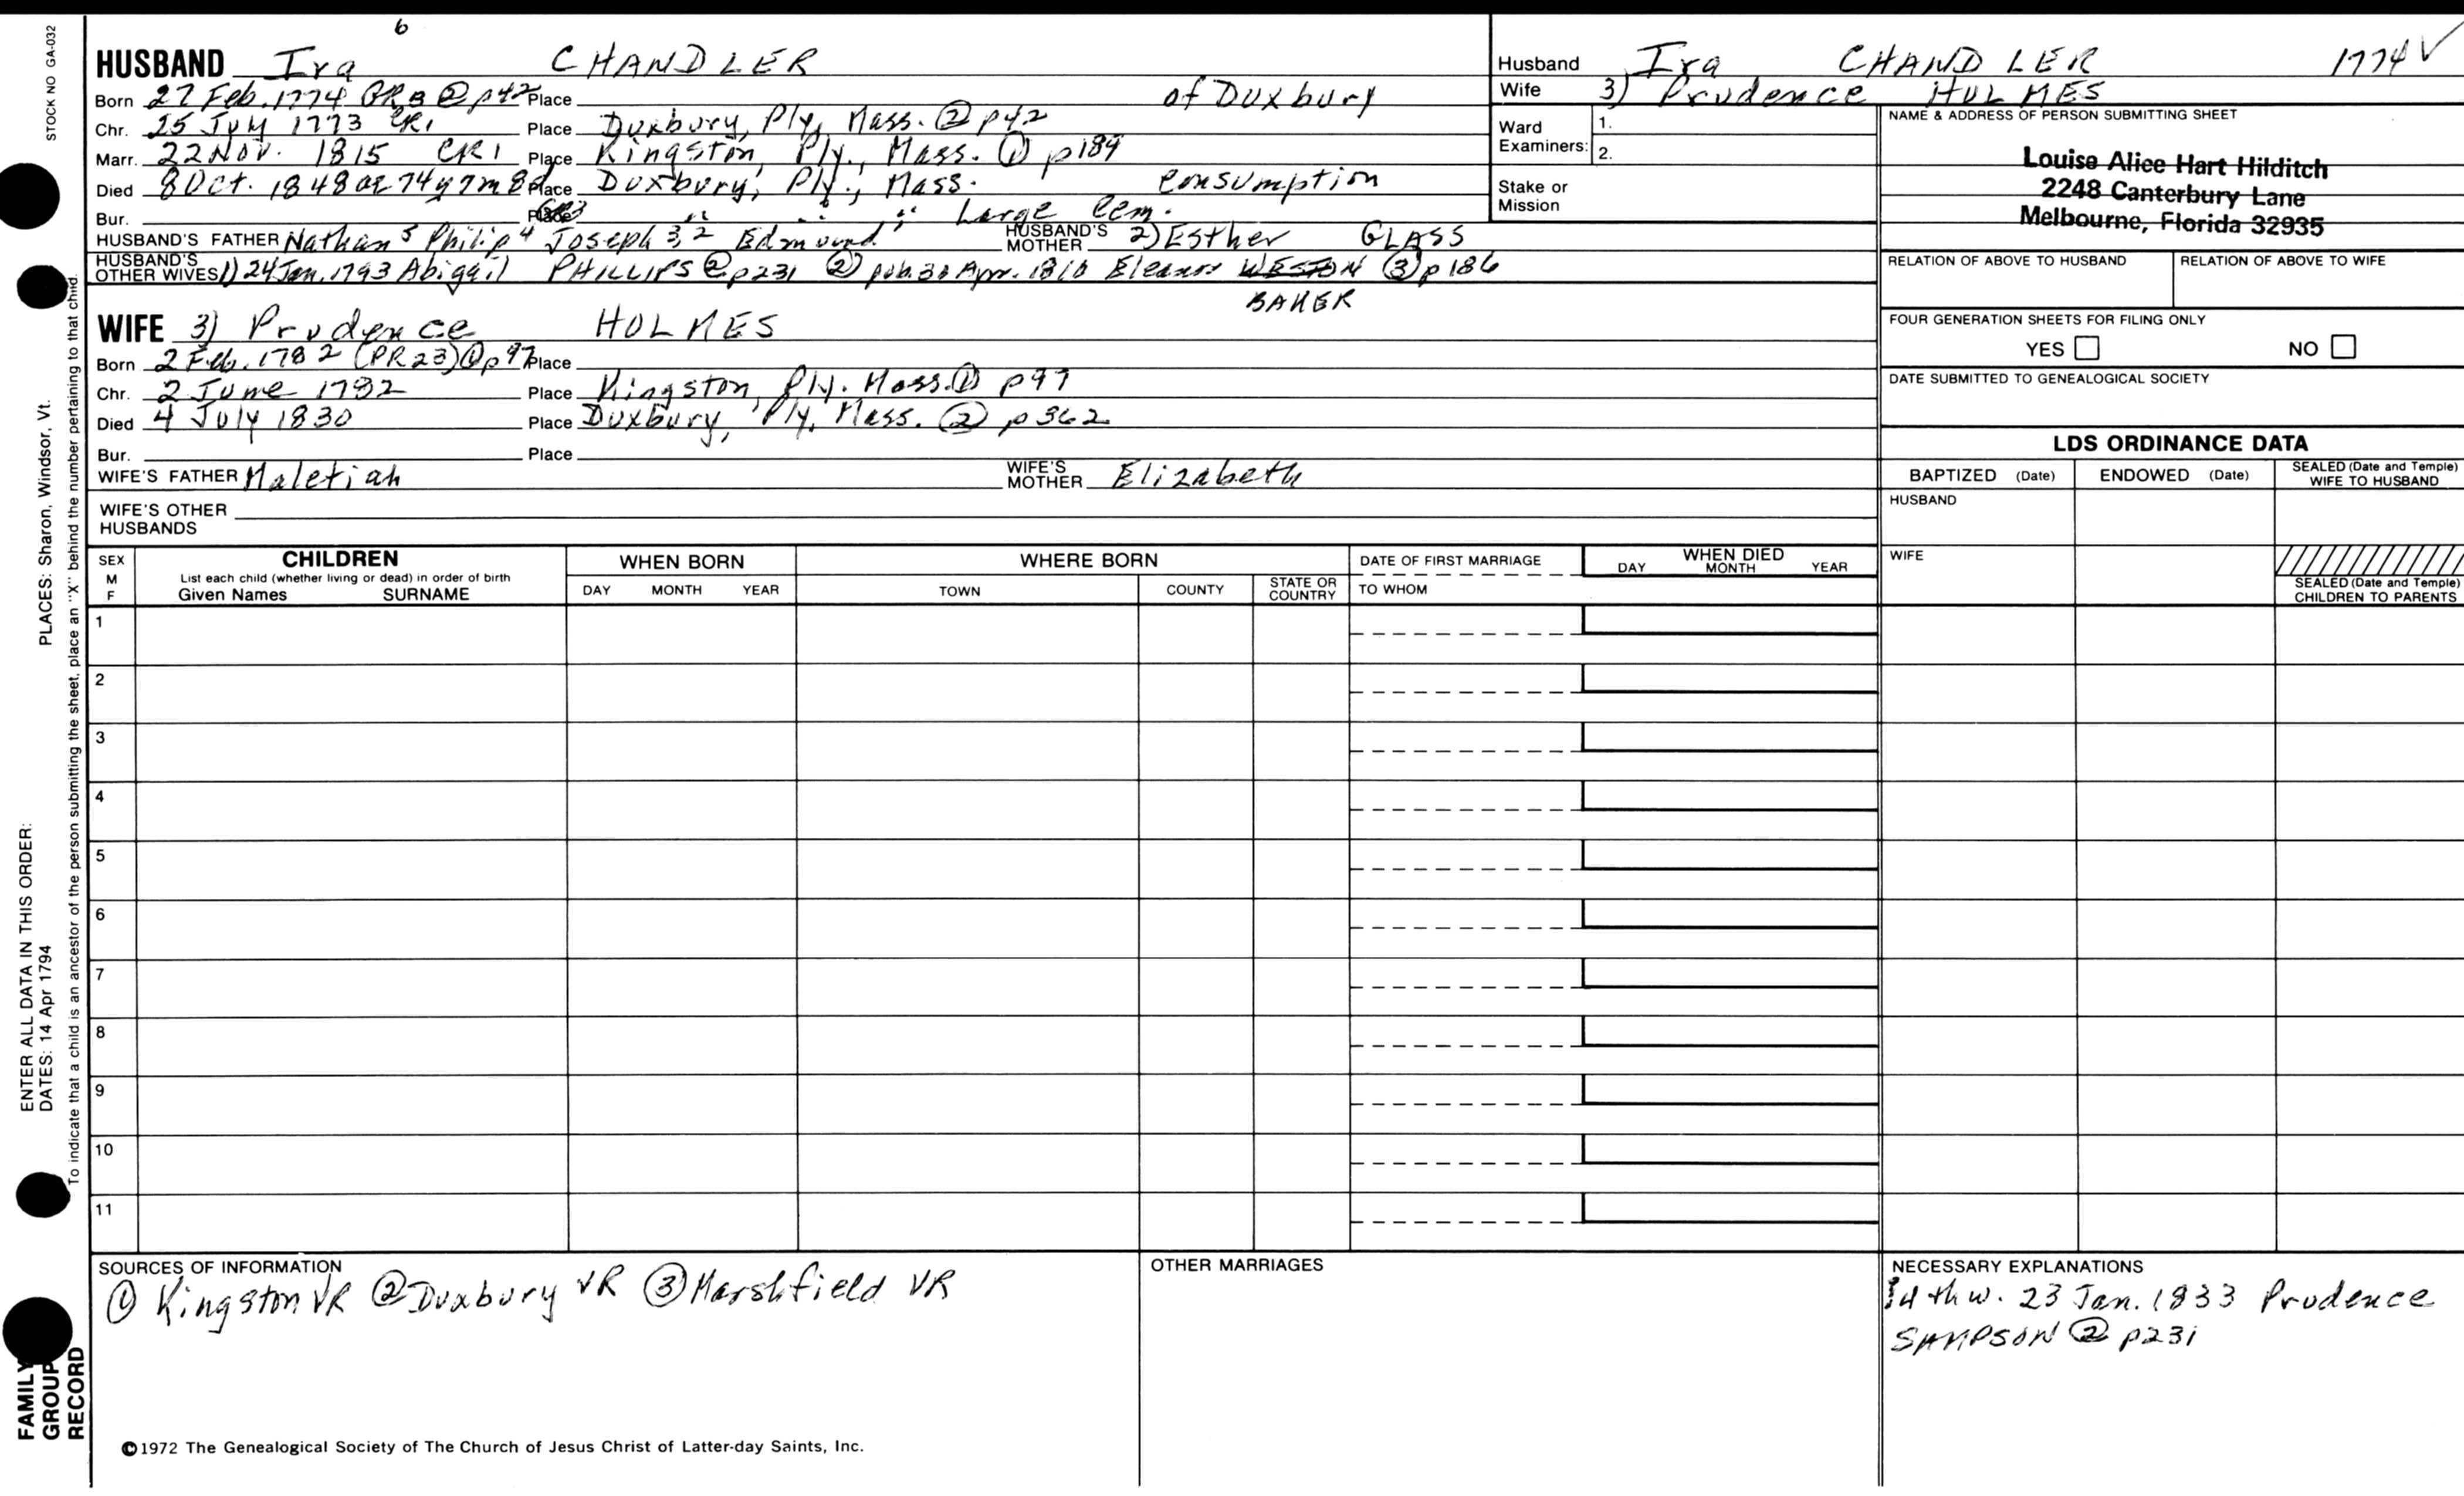 6
HUSBAND Ira CHANDLER
Born 27 Feb. 1774 GR3 ② p42 Place of Duxbury
Chr. 25 July 1773 CR1 Place Duxbury, Ply, Mass. ② p42
Marr. 22 Nov. 1815 CR1 Place Kingston, Ply., Mass. ① p189
Died 8 Oct. 1848 ae 74y 7m 8d Place Duxbury, Ply., Mass. consumption
Bur. Place " " " Large Cem.
HUSBAND'S FATHER Nathan 5 Philip 4 Joseph 3, 2 Edmund 1 HUSBAND'S MOTHER 2) Esther GLASS
HUSBAND'S OTHER WIVES 1) 24 Jan. 1793 Abigail PHILLIPS ② p231 ② pub. 30 Apr. 1810 Eleanor WESTON ③ p186
BAKER
WIFE 3) Prudence HOLMES
Born 2 Feb. 1782 (PR23) ① p97 Place
Chr. 2 June 1782 Place Kingston, Ply. Mass. ① p97
Died 4 July 1830 Place Duxbury, Ply, Mass. ② p362
Bur. Place
WIFE'S FATHER Maletiah WIFE'S MOTHER Elizabeth
WIFE'S OTHER HUSBANDS
Husband Ira CHANDLER 1774 ✓
Wife 3) Prudence HOLMES
Ward Examiners: 1.
2.
Stake or Mission
NAME & ADDRESS OF PERSON SUBMITTING SHEET
Louise Alice Hart Hilditch
2248 Canterbury Lane
Melbourne, Florida 32935
RELATION OF ABOVE TO HUSBAND RELATION OF ABOVE TO WIFE
FOUR GENERATION SHEETS FOR FILING ONLY
YES NO
DATE SUBMITTED TO GENEALOGICAL SOCIETY
LDS ORDINANCE DATA
BAPTIZED (Date) ENDOWED (Date) SEALED (Date and Temple) WIFE TO HUSBAND
HUSBAND
WIFE
SEALED (Date and Temple) CHILDREN TO PARENTS
SEX M F
CHILDREN
List each child (whether living or dead) in order of birth
Given Names SURNAME
WHEN BORN
DAY MONTH YEAR
WHERE BORN
TOWN COUNTY STATE OR COUNTRY
DATE OF FIRST MARRIAGE
TO WHOM
WHEN DIED
DAY MONTH YEAR
1
2
3
4
5
6
7
8
9
10
11
SOURCES OF INFORMATION
① Kingston VR ② Duxbury VR ③ Marshfield VR
OTHER MARRIAGES
NECESSARY EXPLANATIONS
4th w. 23 Jan. 1833 Prudence
SAMPSON ② p231
©1972 The Genealogical Society of The Church of Jesus Christ of Latter-day Saints, Inc.
STOCK NO GA-032
ENTER ALL DATA IN THIS ORDER:
DATES: 14 Apr 1794 PLACES: Sharon, Windsor, Vt.
To indicate that a child is an ancestor of the person submitting the sheet, place an "X" behind the number pertaining to that child.
FAMILY GROUP RECORD